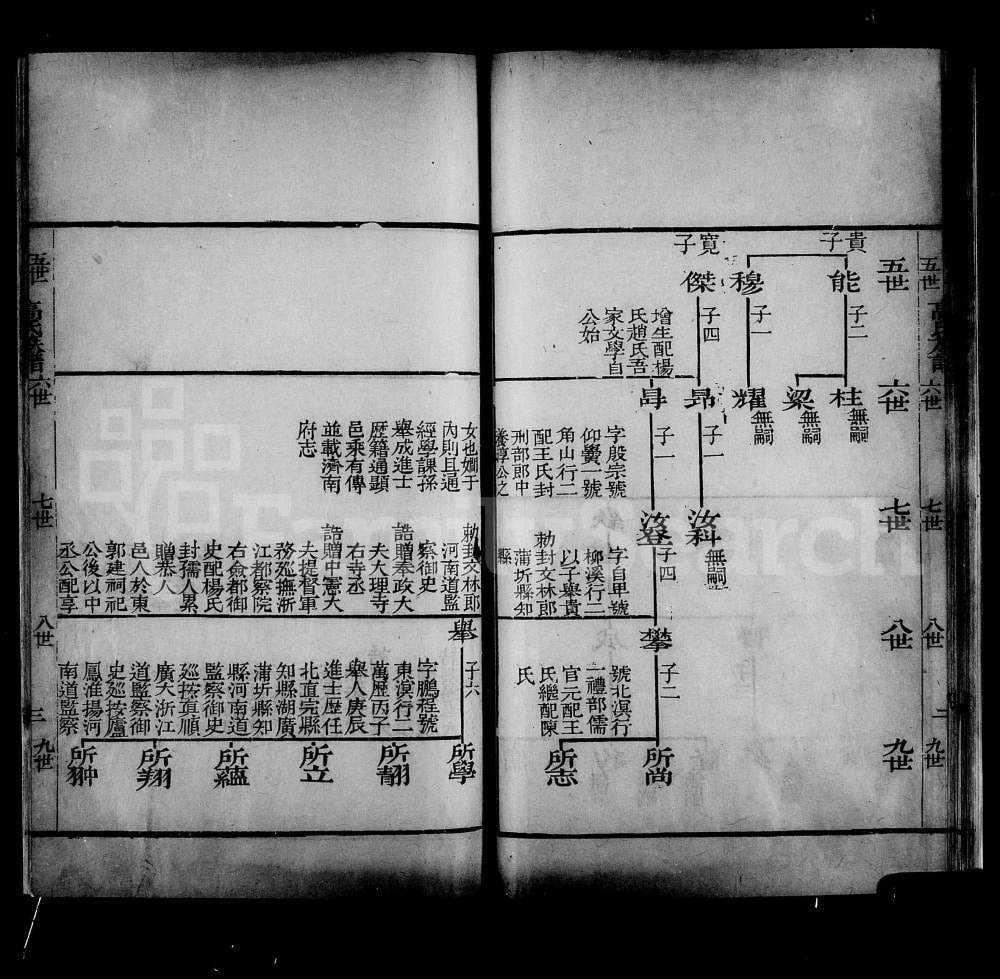 五世
六世
七世
八世
九世
五世
六世
七世
八世
九世
貴子
能
子二
桂
無嗣
梁
無嗣
穆
子一
耀
無嗣
寬子
傑
子四
增生配楊
氏趙氏吾
家文學自
公始
昴
子一
汝科
無嗣
子一
字殷宗號
仰 一號
角山行二
配王氏封
刑部郎中
女也嫺子
內則且通
經學課孫
舉成進士
歷籍通顯
邑乘有傳
並載濟南
府志
子四
字自卑號
柳溪行二
以子舉貴
勅封文林郎
蒲圻縣知
縣
勅封文林郎
河南道監
察御史
誥贈奉政大
夫大理寺
右寺丞
誥贈中憲大
夫提督軍
務廵撫浙
江都察院
右僉都御
史配楊氏
封孺人累
贈恭人
邑人於東
郭建祠祀
公後以中
丞公配享
攀
子二
號北溟行
一禮部儒
官元配王
氏繼配陳
氏
所尚
所志
舉
子六
字鵬程號
東溟行二
萬歷丙子
舉人庚辰
進士歷任
北直完縣
知縣湖廣
蒲圻縣知
縣河南道
監察御史
廵按直順
廣大浙江
道監察御
史廵按廬
鳳淮揚河
南道監察
所學
所翿
所立
所蘊
所翔
所翀
五世
高氏
六世
七世
八世
三
九世
FamilySearch